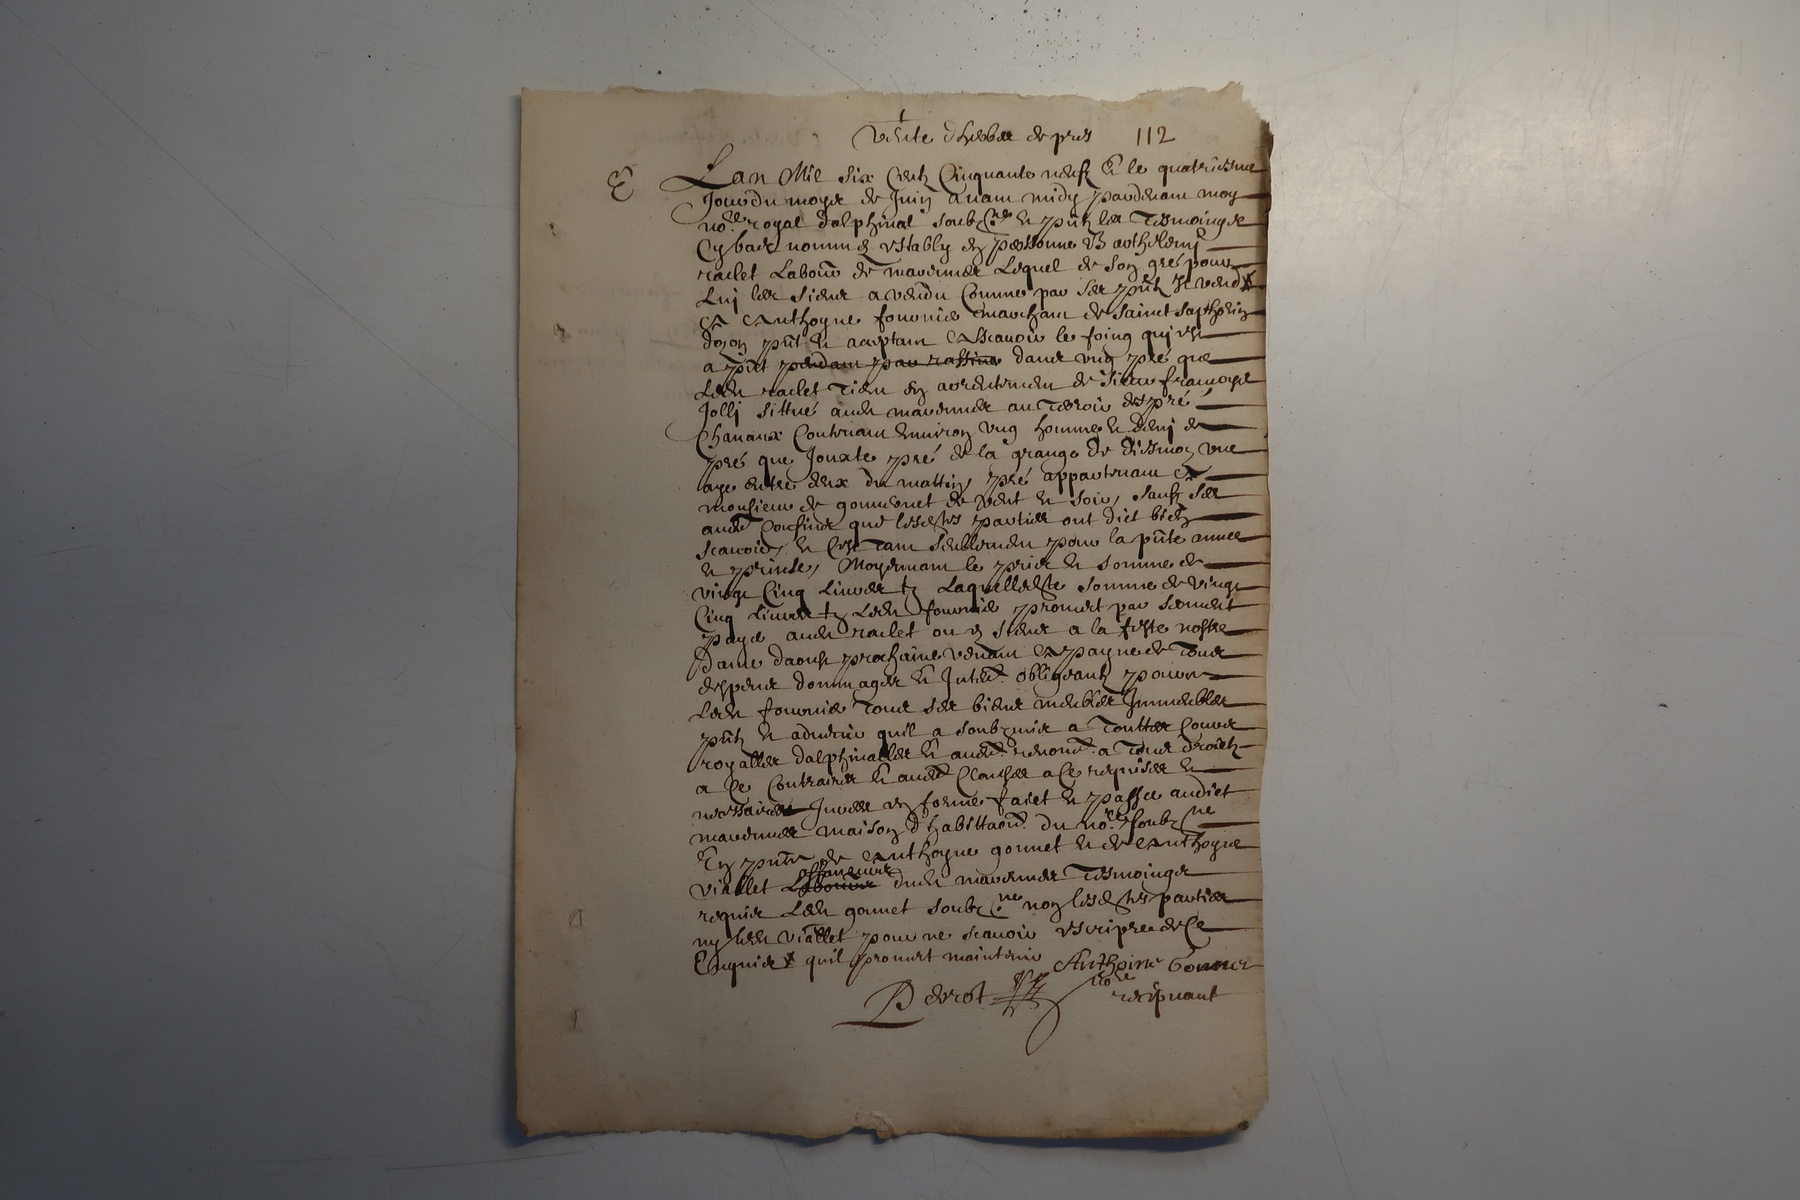 vente dherbes de pres 112
E Lan Mil six Centz Cinquante neufz & le quatriesme
Jour du moys de Juin avant midy pardevant moy
no.re royal dalphinal soubz.ne & pntz les tesmoingtz
Cy bas nommes estably en personne Barthelemy
raclet Labour de marennes Lequel de son gré pour
Luy les siens a vendu Comme par ses pntz Il vend
a Anthoyne fournier marchant de Sainct Saphorin
dozon pnt & acceptant Assavoir le foing qui est
a pnt pendant par rassine dans ung pré que
Led raclet tient en arrentement de sieur francoys
Jolly sittué aud marennes au terroir des pré
Chanaux Contenant environ ung homme & demi de
pré que Jouxte pré de la grange de
aye entre deux du mattin, pré appartenant a
monsieur de gouvernet de vent & soir, sauf ses
aud Confins que lesdtes parties ont dict bien
scavoir, & Cest tant seullement pour la pnte annee
& prinse, Moyennant le prix & somme de
vingt Cinq Livres tz Laquelledte somme de vingt
Cinq Livres tz Led fournier promet par serment
payer aud raclet ou es siens a la feste nostre
dame daoust prochaine venant a payne de tous
despens dommages & Intz. obligeant pour
Led fournier tous ses biens meubles Immeubles
pntz & advenir quil a soubzmis a touttes Cours
royalles dalphinalles & aud renonct. a tous droictz
a Ce Contraires & aud Clauses a Ce requises &
necessaires Jures en forme faict & passé audict
marennes maison dhabittaon. du no.re soubz.ne
En pnce de Anthoyne gonnet & de Anthoyne
viallet Labour affaneurs dud marennes tesmoings
requis Led gonnet soubz.ne non lesdtes parties
ny led viallet pour ne scavoir escripre de Ce
Enquis quil promet maintenir Anthoine Gonnet
Perrot no.re
recepvant